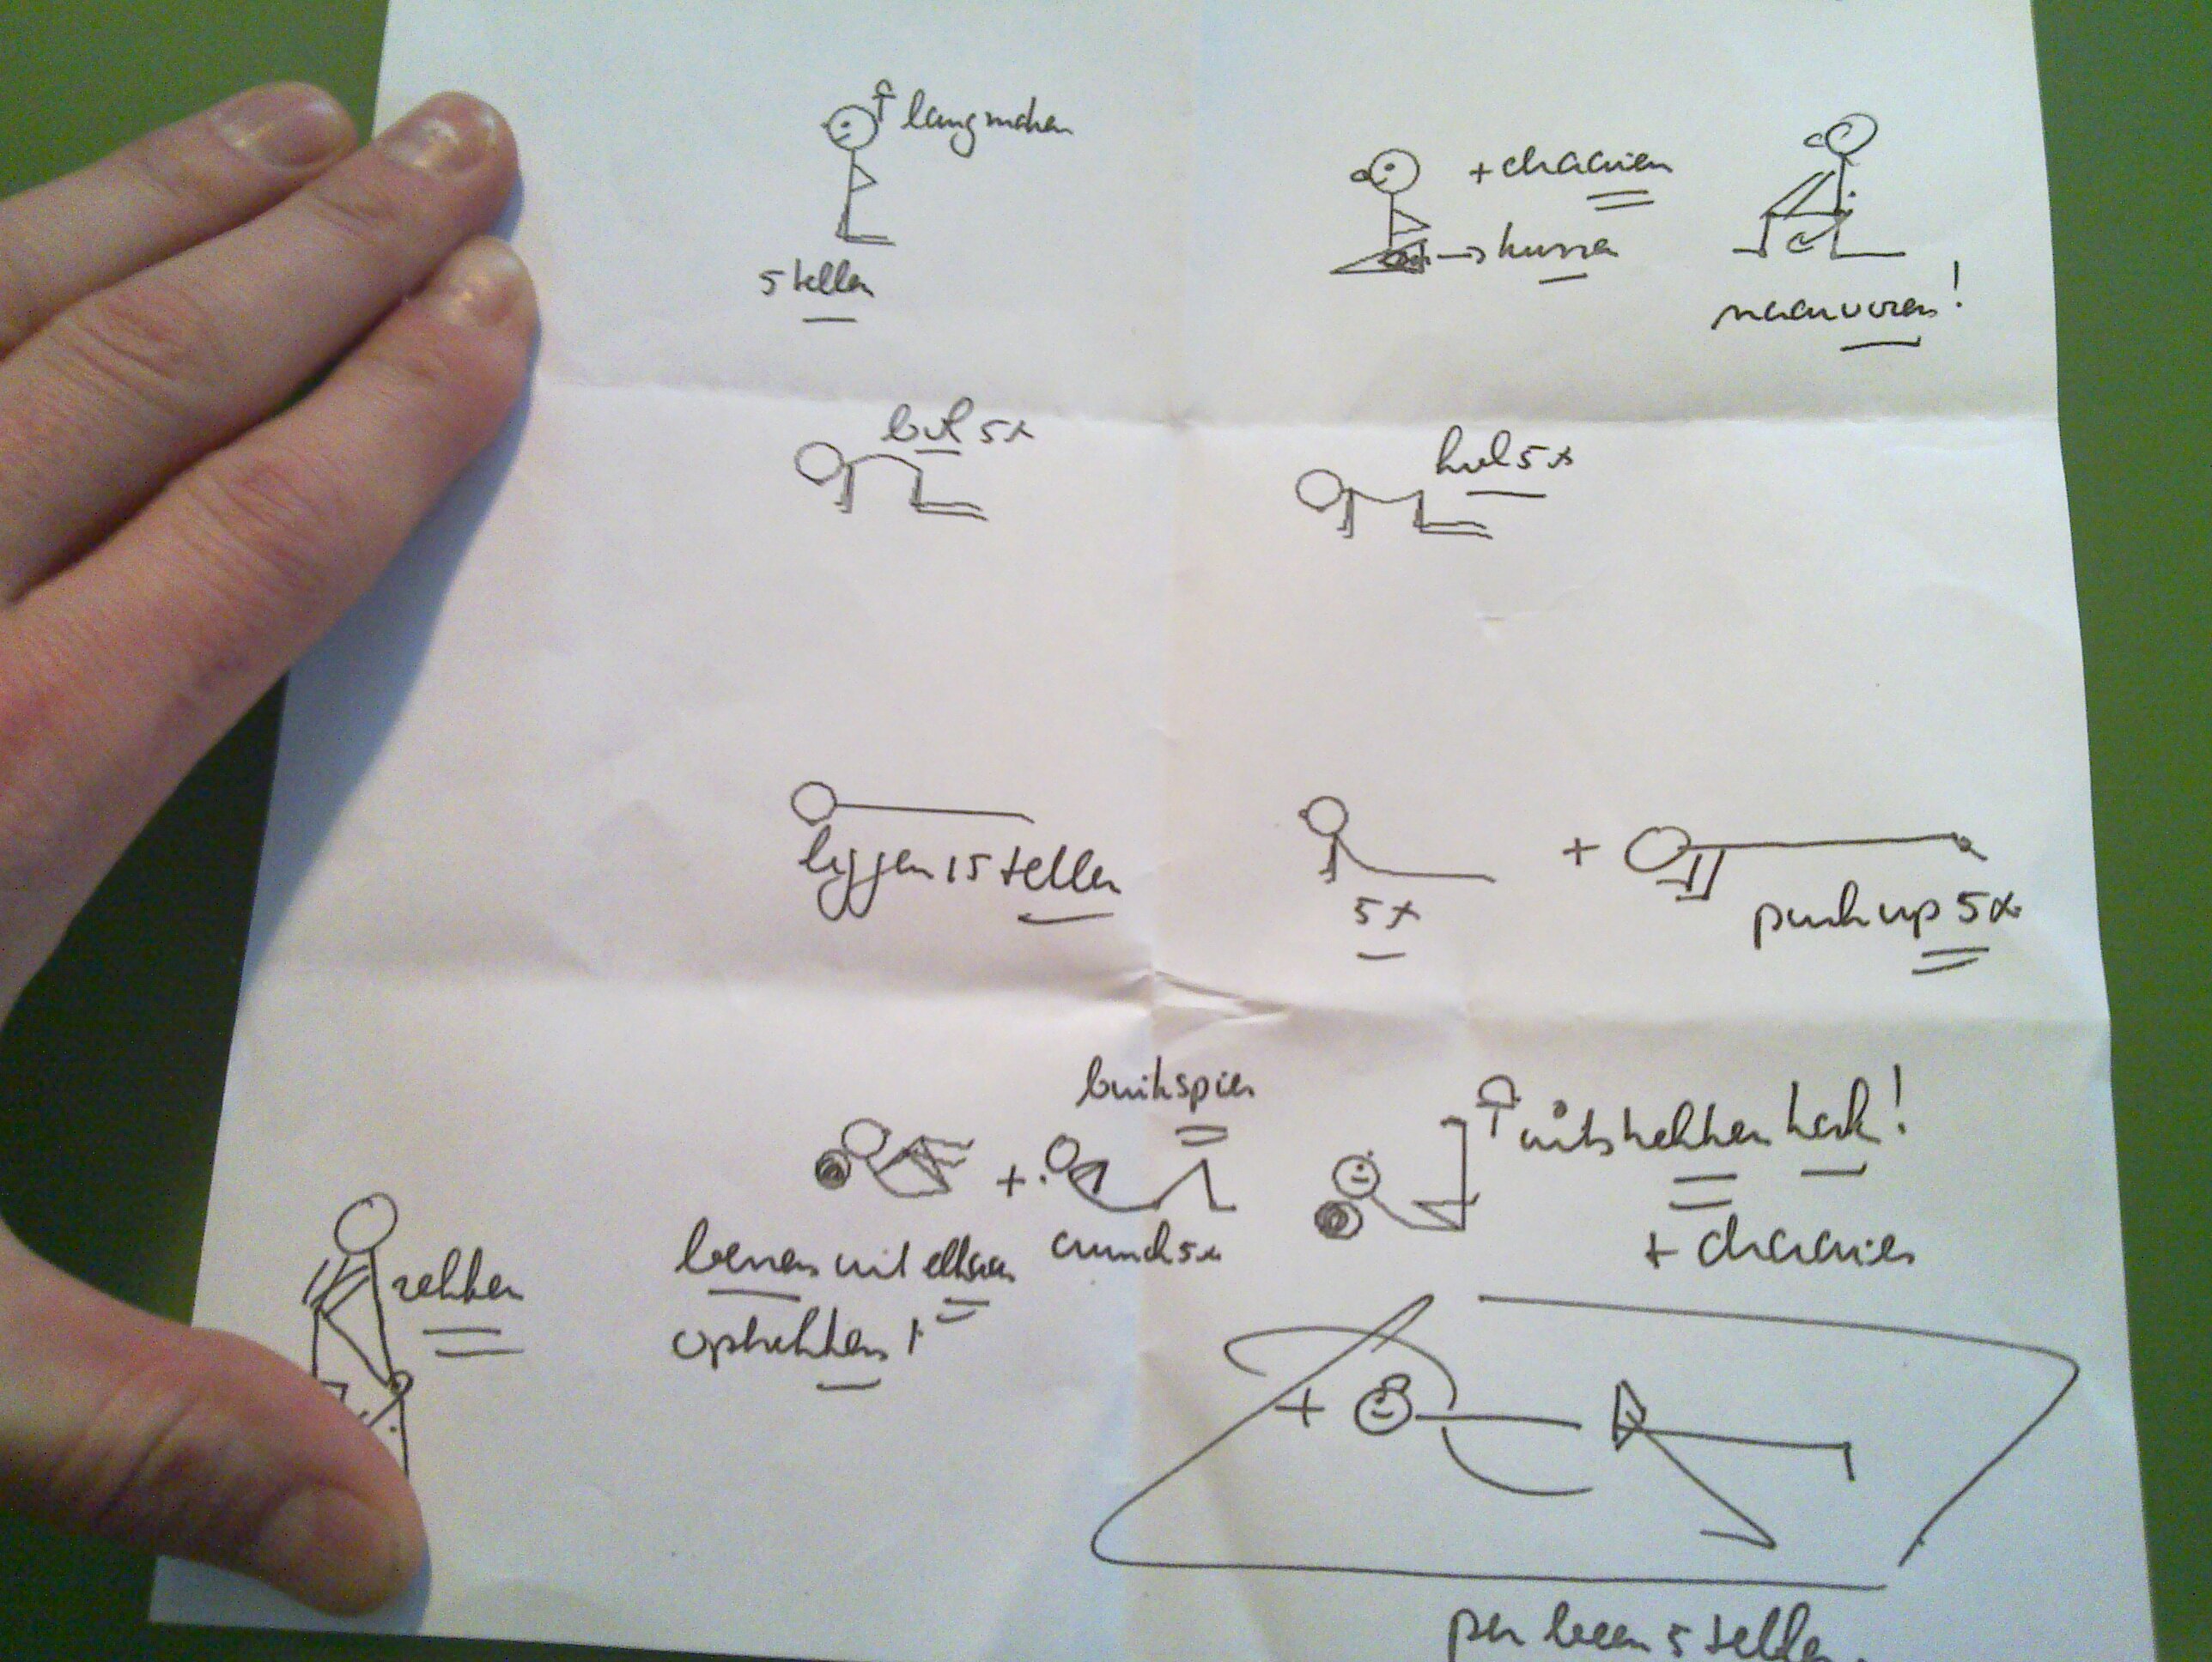 langmaken
5 tellen
+ draaien
→ kussen
naar voren!
bol 5x
hol 5x
liggen 15 tellen
5x
+
push up 5x
buikspier
+
crunch 5x
benen uit elkaar
optrekken!
uitstrekken been!
+ draaien
rekken
+
per been 5 tellen.